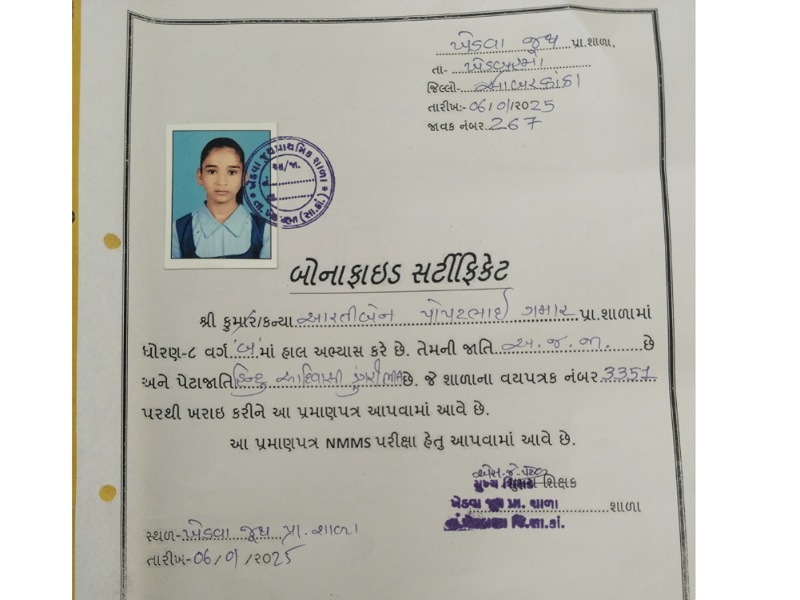 ખેડવા જુથ પ્રા.શાળા,
તા- ખેડબ્રહ્મા
જિલ્લો- સાબરકાંઠા
તારીખ:- 06/01/૨૦25
જાવક નંબર. 267
ખેડવા જુથ પ્રાથમિક શાળા
બોનાફાઇડ સર્ટીફિકેટ
શ્રી કુમાર/કન્યા આરતીબેન પોપટભાઈ ગમાર પ્રા.શાળામાં
ધોરણ-૮ વર્ગ 'બ' માં હાલ અભ્યાસ કરે છે. તેમની જાતિ અ.જ.જા. છે
અને પેટાજાતિ હિન્દુ આદિવાસી ડુંગરી છે. જે શાળાના વયપત્રક નંબર 3351
પરથી ખરાઇ કરીને આ પ્રમાણપત્ર આપવામાં આવે છે.
આ પ્રમાણપત્ર NMMS પરીક્ષા હેતુ આપવામાં આવે છે.
મુખ્ય શિક્ષક
ખેડવા જુથ પ્રા. શાળા શાળા
જિ.સા.કાં.
સ્થળ- ખેડવા જુથ પ્રા. શાળા
તારીખ- 06/01/૨૦25